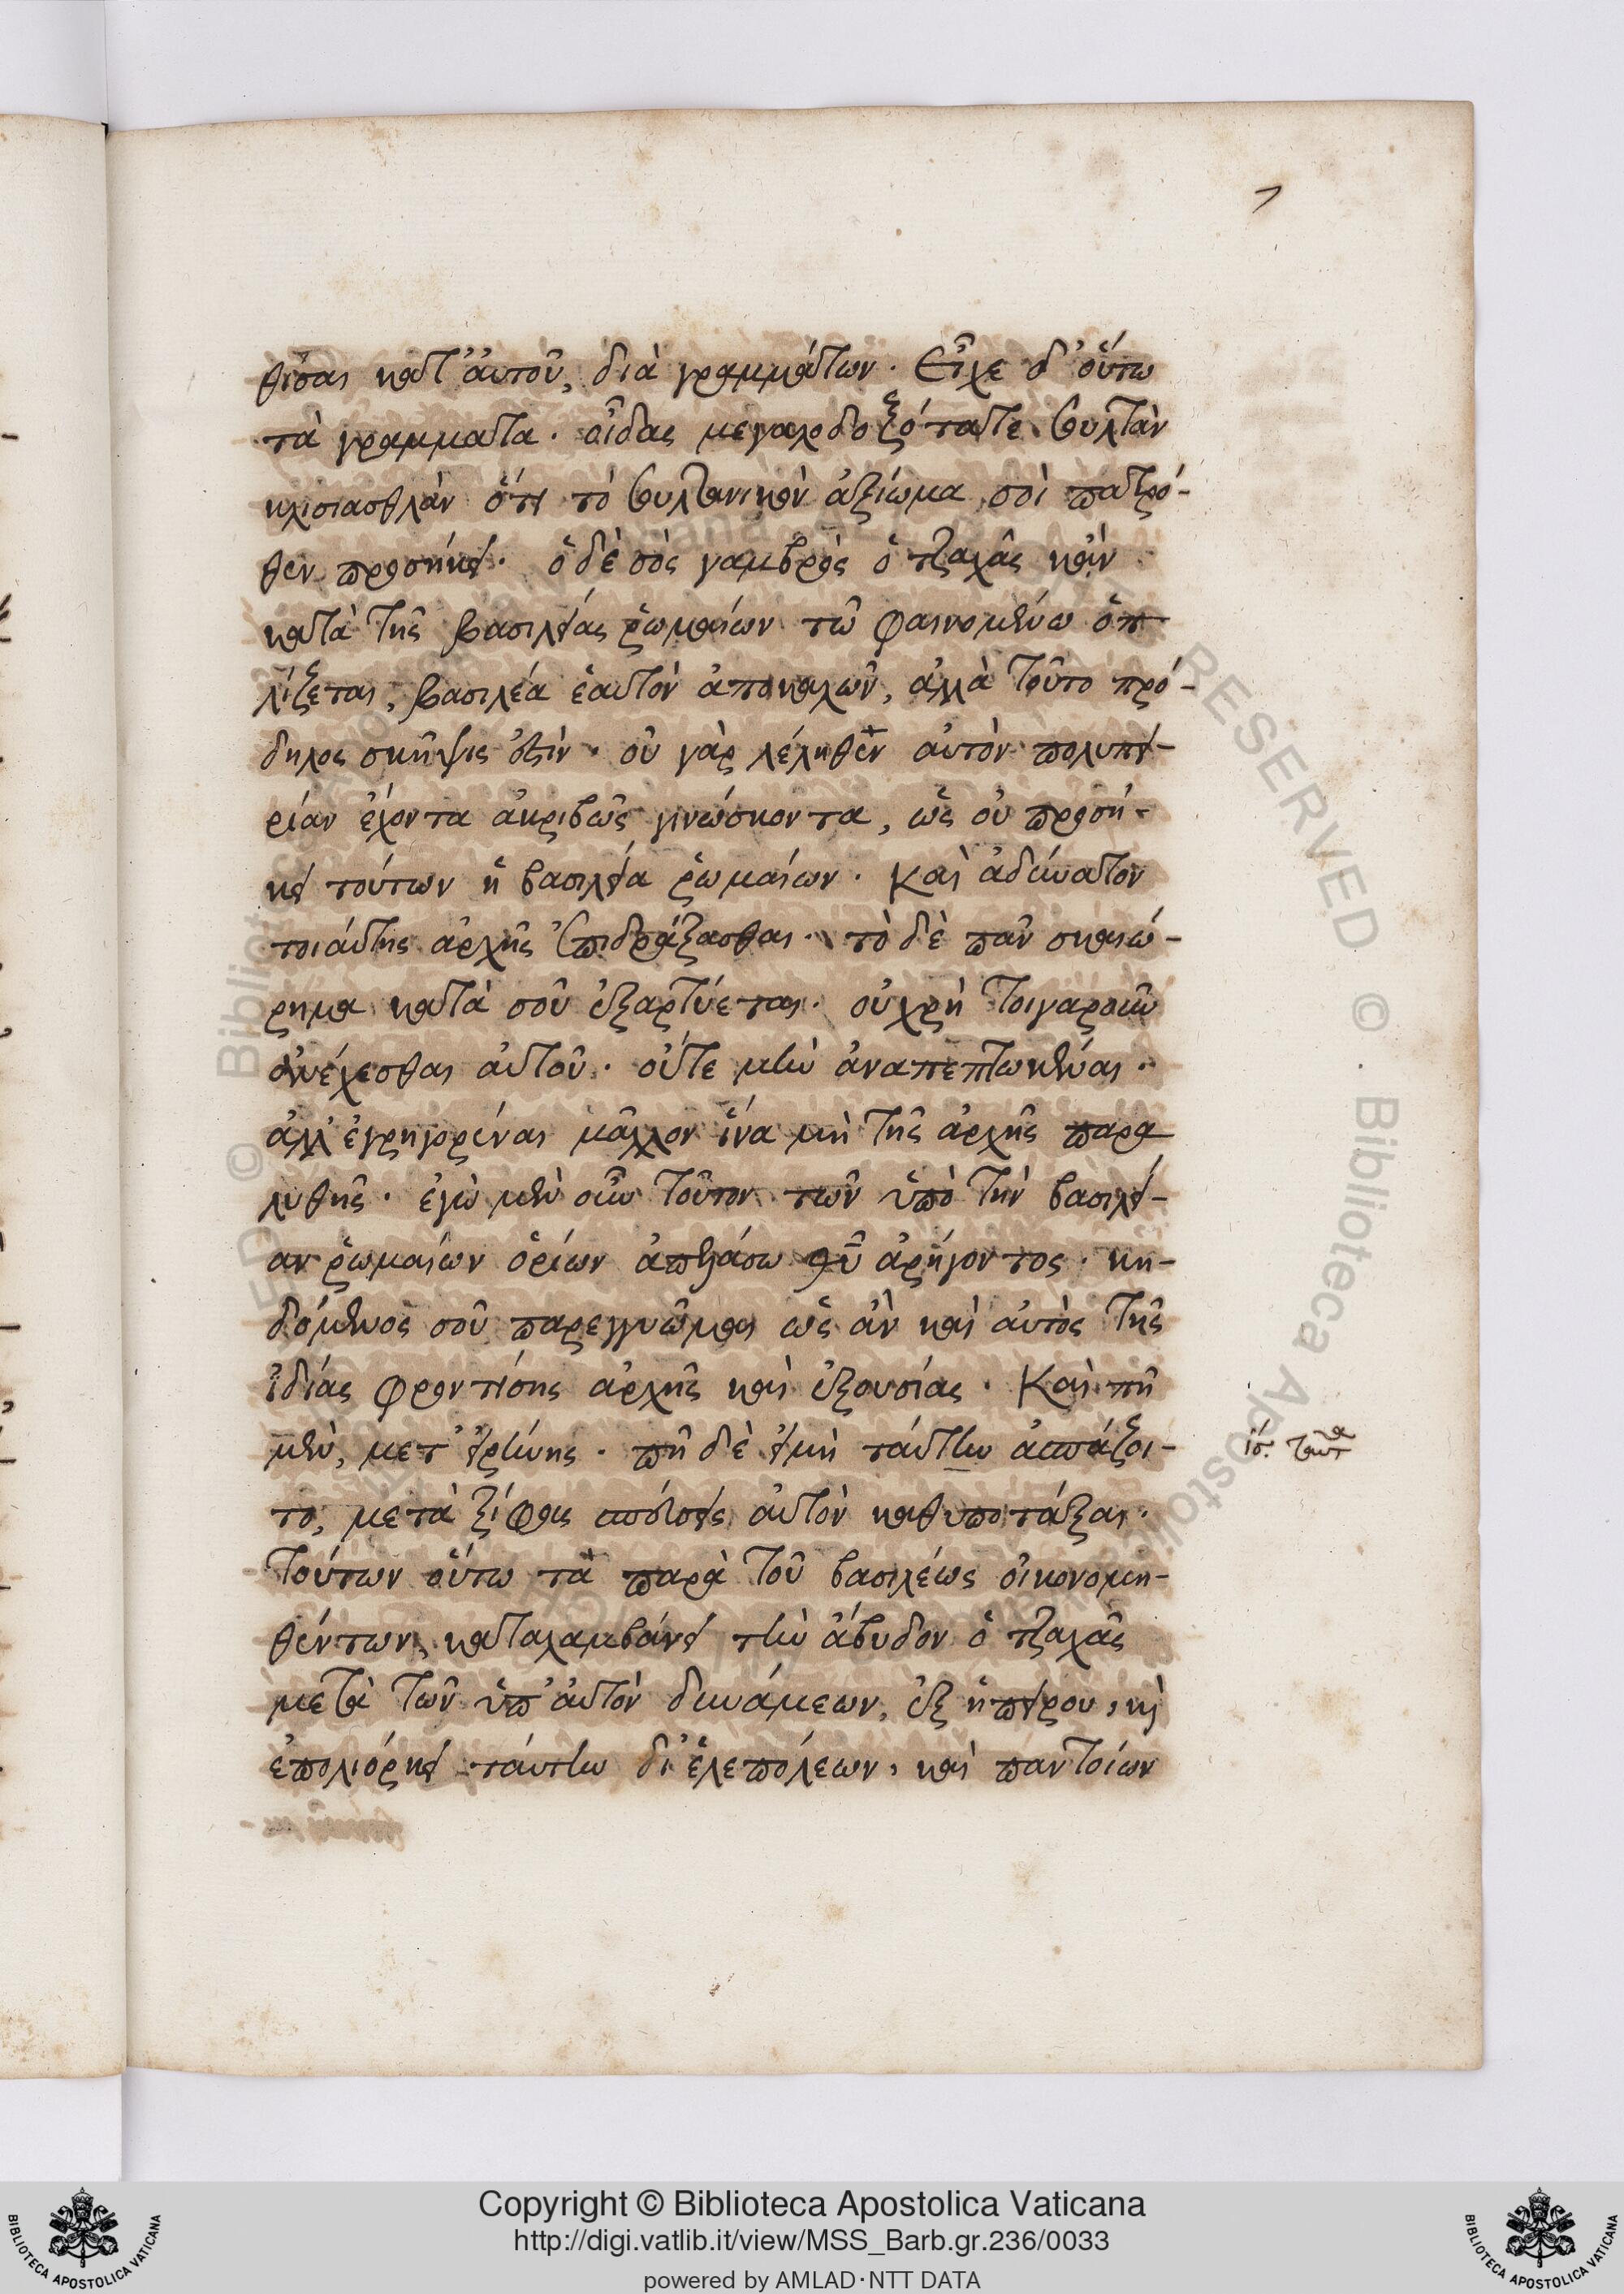 7
θίσαι κατ' ἀυτοῦ, διὰ γραμμάτων. Εἶχε δ' ὅυτω
τὰ γράμματα. οἶδας μεγαλοδοξότατε σουλτὰν
κλισιασθλὰν ὅτι τὸ σουλτανικὸν ἀξίωμα σοὶ πατρό-
θεν προσήκει. ὁ δὲ σὸς γαμβρὸς ὁ τζαχᾶς κἂν
κατὰ τῆς βασιλείας ῥωμαίων τῶ φαινομένω ὁπ
λίζεται, βασιλέα ἑαυτὸν ἀποκαλῶν, ἀλλὰ τοῦτο πρό-
δηλος σκῆψις ἐστὶν. οὐ γὰρ λέληθεν αὐτὸν πολυπει-
ρίαν ἔχοντα ἀκριβῶς γινώσκοντα, ὡς οὐ προσή-
κει τούτων ἡ βασιλεία ῥωμαίων. Καὶ ἀδύνατον
τοιάυτης ἀρχῆς ἐπιδράξασθαι. τὸ δὲ πᾶν σκαιώ-
ρημα κατὰ σοῦ ἐξαρτύεται. οὐ χρὴ τοιγαροῦν
ἀνέχεσθαι ἀυτοῦ. οὔτε μὴν ἀναπεπτωκέναι.
ἀλλ' ἐγρηγορέναι μᾶλλον ἵνα μὴ τῆς ἀρχῆς παρα
λυθῆς. ἐγὼ μὲν οὖν τοῦτον τῶν ὑπὸ τὴν βασιλεί-
αν ῥωμαίων ὁρίων ἀπελάσω θῦ ἀρήγοντος. κη-
δόμενος σοῦ παρεγγυῶμαι ὡς ἂν καὶ ἀυτὸς τῆς
ἰδίας φροντίσης ἀρχῆς καὶ ἐξουσίας. Καὶ πῆ
μὲν, μετ' εἰρήνης. πῆ δὲ εἰ μὴ ταύτην ἀσπάζοι-
το, μετὰ ξίφους σπεύσεις ἀυτὸν καθυποτάξαι.
Τούτων ὅυτω τὰ παρὰ τοῦ βασιλέως οἰκονομη-
θέντων, καταλαμβάνει τὴν ἄβυδον ὁ τζαχᾶς
μετὰ τῶν ὑπ' ἀυτὸν δυνάμεων, ἐξ ἠπείρου, κὶ
ἐπολιόρκει ταύτην δι' ἑλεπόλεων, καὶ παντοίων
ἴσ. ταῦτα
Copyright © Biblioteca Apostolica Vaticana
http://digi.vatlib.it/view/MSS_Barb.gr.236/0033
powered by AMLAD·NTT DATA
BIBLIOTECA APOSTOLICA VATICANA
BIBLIOTECA APOSTOLICA VATICANA